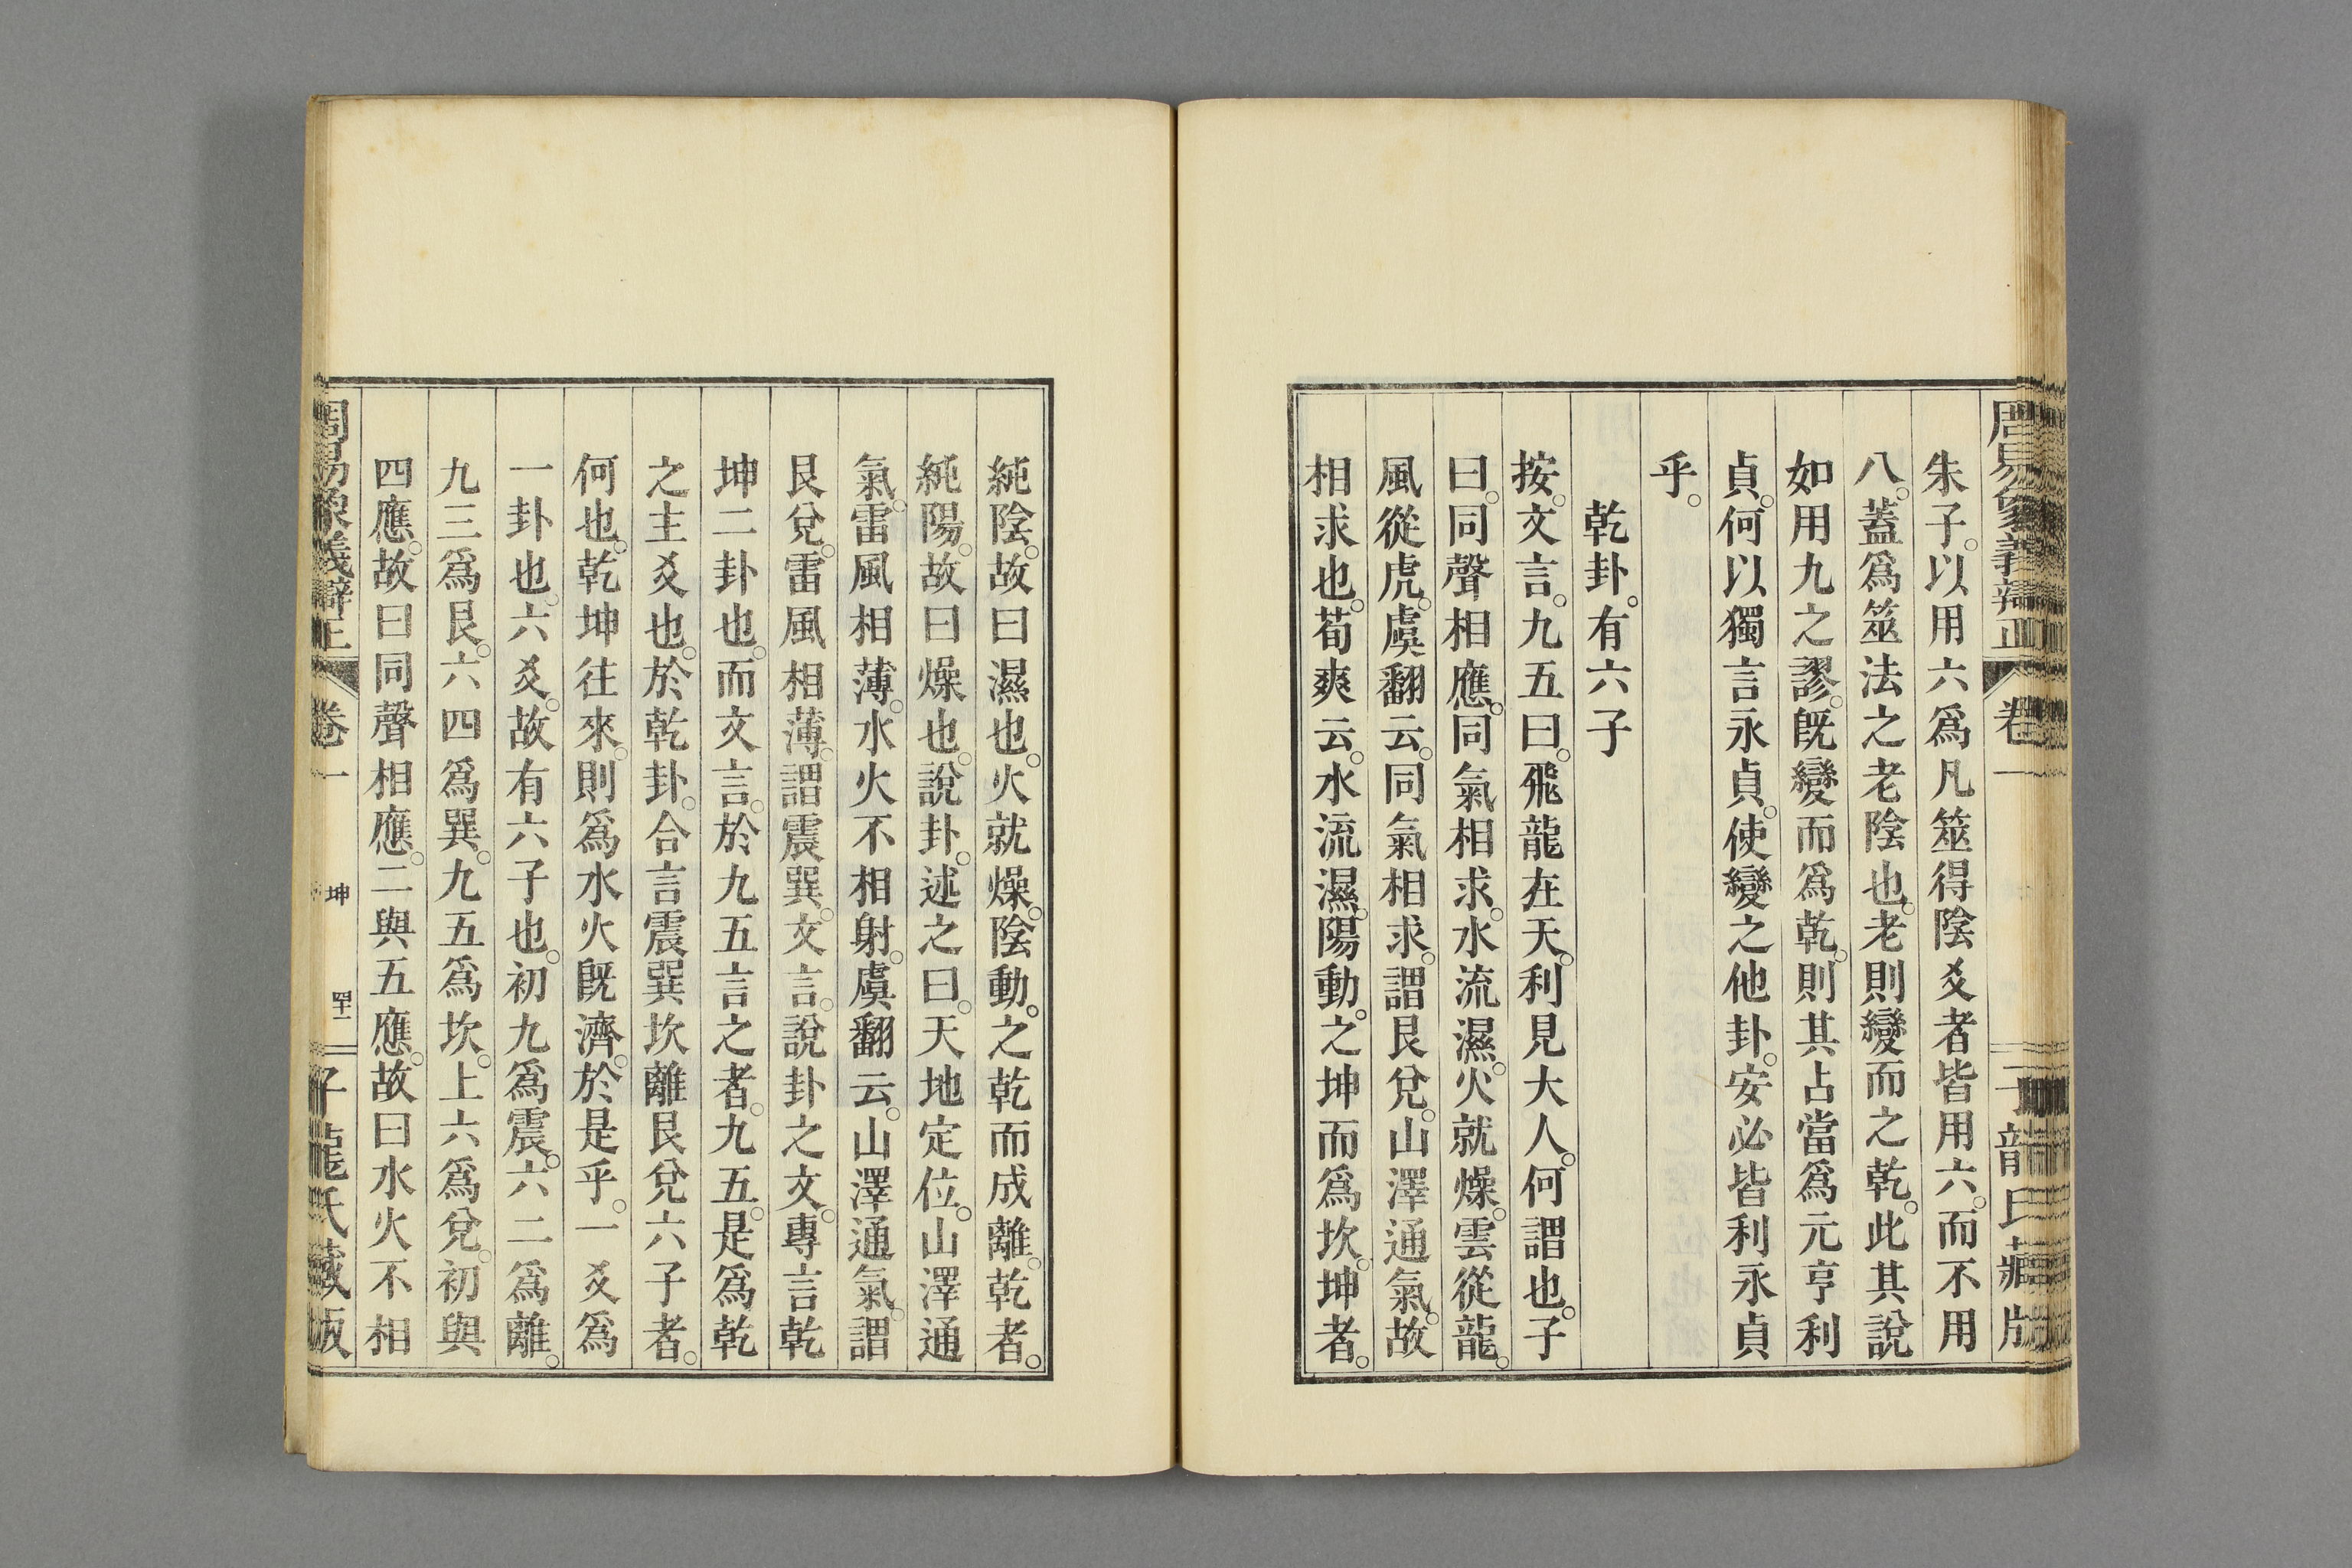 周易象義辯正 卷一 子龍氏藏版
朱子。以用六爲凡筮得陰爻者皆用六。而不用
八。蓋爲筮法之老陰也。老則變而之乾。此其說
如用九之謬。旣變而爲乾。則其占當爲元亨利
貞。何以獨言永貞。使變之他卦。安必皆利永貞
乎。
乾卦。有六子
按。文言。九五曰。飛龍在天。利見大人。何謂也。子
曰。同聲相應。同氣相求。水流濕。火就燥。雲從龍。
風從虎。虞翻云。同氣相求。謂艮兌。山澤通氣。故
相求也。荀爽云。水流濕。陽動。之坤而爲坎。坤者。
純陰。故曰濕也。火就燥。陰動。之乾而成離。乾者。
純陽。故曰燥也。說卦。述之曰。天地定位。山澤通
氣。雷風相薄。水火不相射。虞翻云。山澤通氣。謂
艮兌。雷風相薄。謂震巽。文言。說卦之文。專言乾
坤二卦也。而文言。於九五言之者。九五。是爲乾
之主爻也。於乾卦。合言震巽坎離艮兌六子者。
何也。乾坤往來。則爲水火旣濟。於是乎。一爻爲
一卦也。六爻。故有六子也。初九爲震。六二爲離。
九三爲艮。六四爲巽。九五爲坎。上六爲兌。初與
四應。故曰同聲相應。二與五應。故曰水火不相
周易象義辯正 卷一 坤 四十一 子龍氏藏版